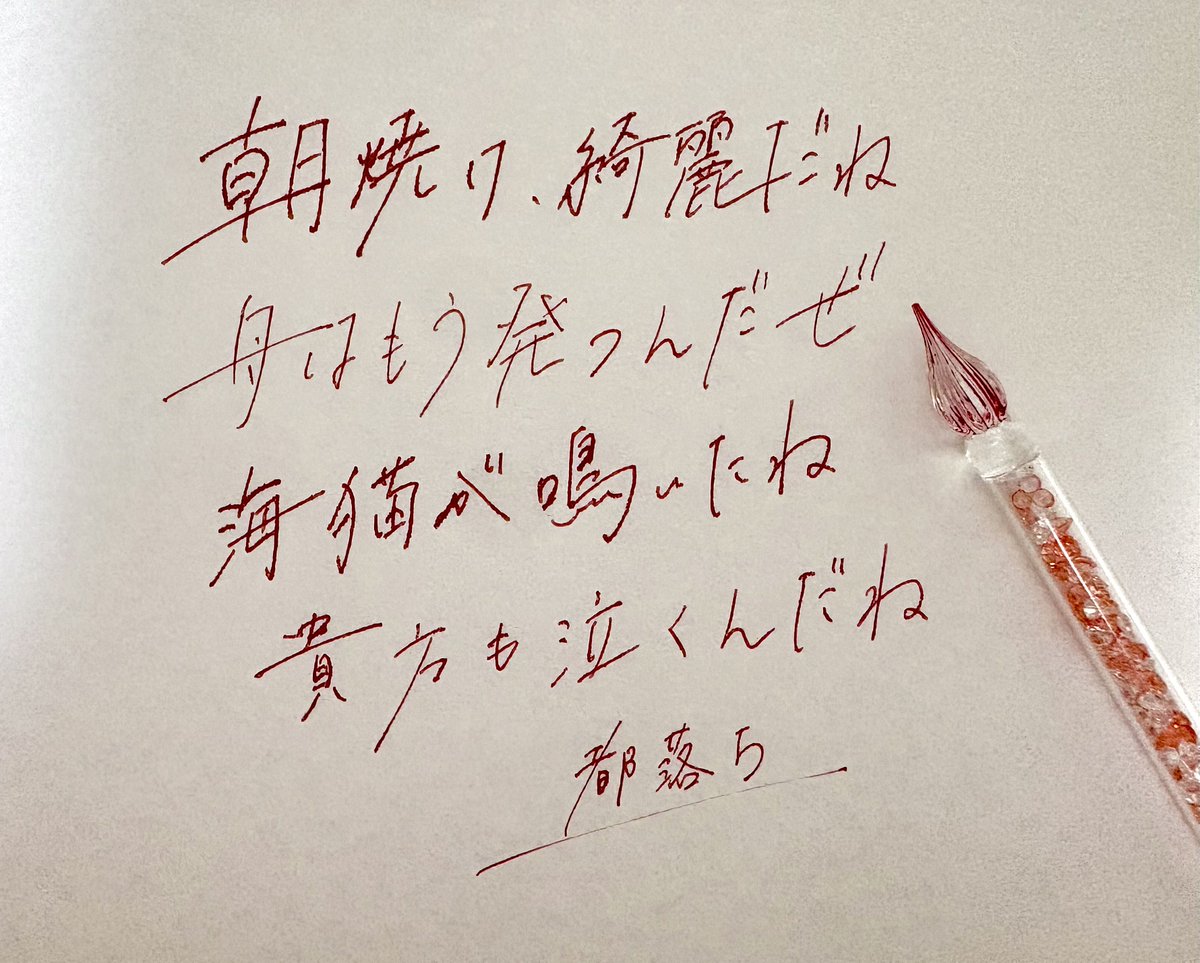 朝焼け、綺麗だね
舟はもう発つんだぜ
海猫が鳴いたね
貴方も泣くんだね
都落ち